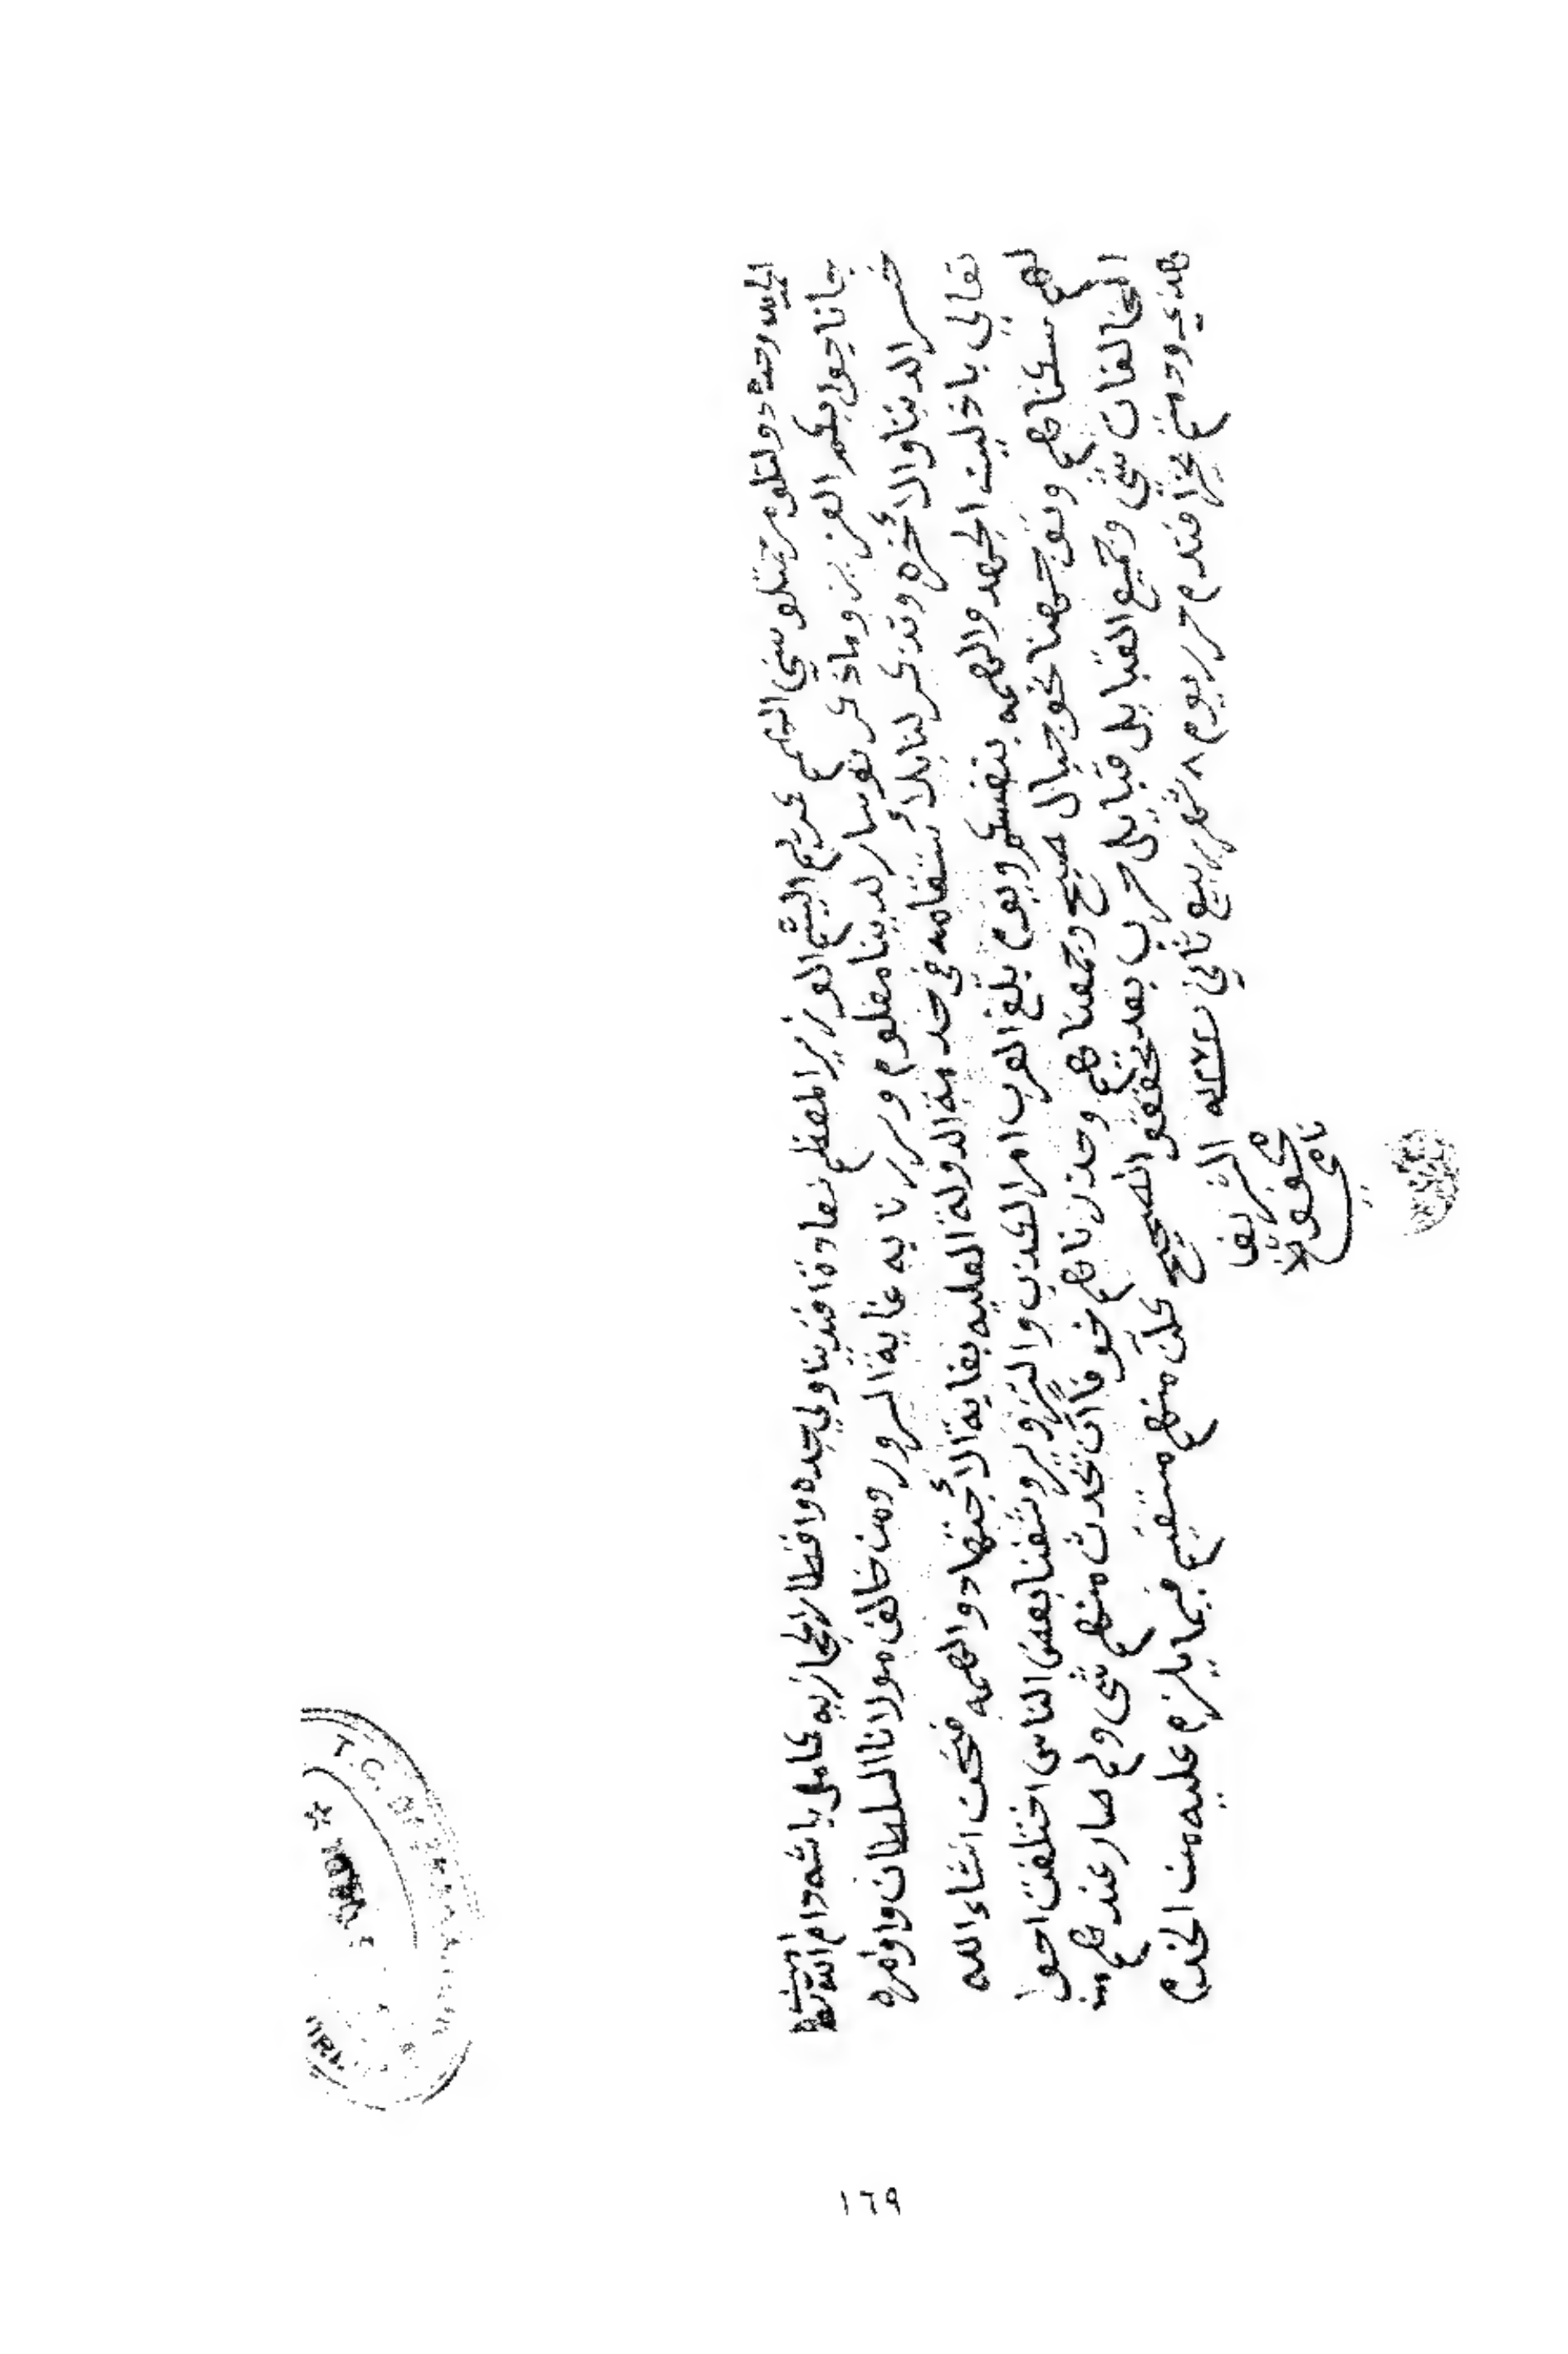 الحمد لله وحده دولتلو مرحمتلو سني الهمم كريم الشيم الوزير المعظم سعادة افندينا والي جده واقطار الحجازيه كامل باشه دام الله بقا
جانا جوابكم العزيز وما ذكرتو سار لدينا معلوم وسررنا به غاية السرور ومن خالف مولانا السلطان واوامره
خسر الدنيا والأخره وتذكر لنا بلأستقامه في خدمة الدولة العليه بغاية الأجتهاد والهمه فنحن انشاء الله
تعالى باذلين الجهد والهمه بنفسكم ويوم بلغ العرب امر الكذب والتزوير وشفنا بعض الناس اختلفت احوا
لهم سكناهم وتوجهنا نحو جبال صبح وجمعناهم وحذرناهم خوفاً ان تحدث منهم شي ولم صار عندهم من
المخالفات شي وجميع القبايل قبايل حرب بعد تحققو الصحيح كل منهم مستقيم فيما يلزم عليه من الخدم
هذي ودمتم بخير افندم حرر يوم ٨ شهر ربيع ثاني سنة
الشريف
محفوظ
نامي
T.C.
١٦٩